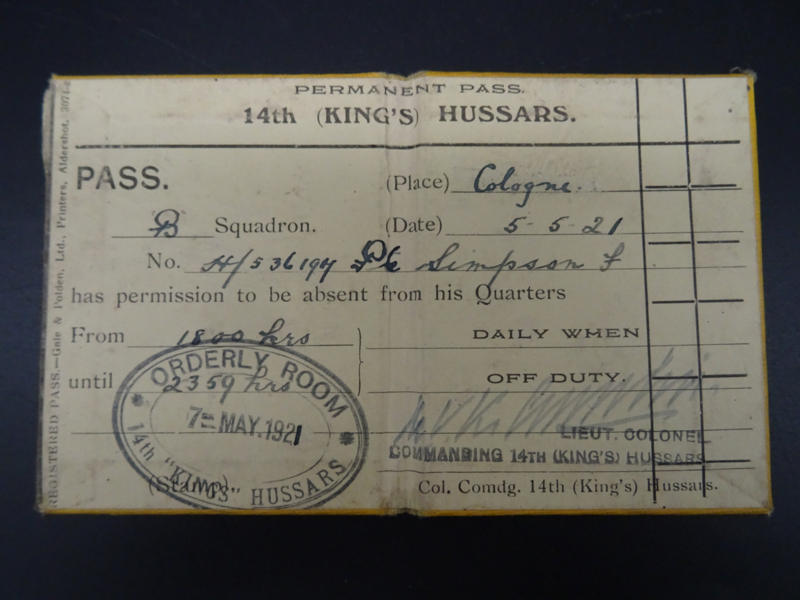 PERMANENT PASS.
14th (KING'S) HUSSARS.
PASS. (Place) Cologne.
B Squadron. (Date) 5-5-21
No. H/536194 Pte Simpson F
has permission to be absent from his Quarters
From 1800 hrs DAILY WHEN
until 2359 hrs OFF DUTY.
ORDERLY ROOM
7 = MAY. 1921
14th "KING'S" HUSSARS
(Stamp)
LIEUT. COLONEL
COMMANDING 14TH (KING'S) HUSSARS
Col. Comdg. 14th (King's) Hussars.
REGISTERED PASS.—Gale & Polden, Ltd., Printers, Aldershot.